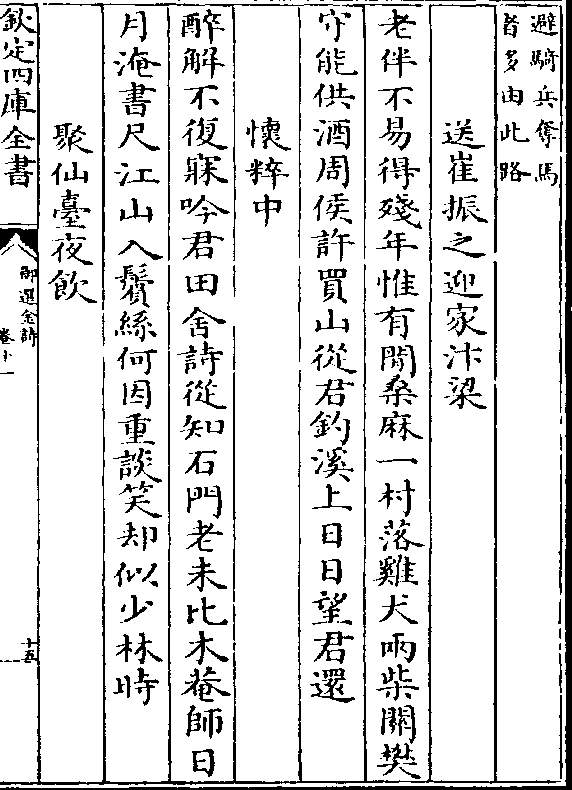 避騎兵奪馬
者多由此路
送崔振之迎家汴梁
老伴不易得殘年惟有閒桑麻一村落雞犬兩柴關樊
守能供酒周侯許買山從君釣溪上日日望君還
懷粹中
醉解不復寐吟君田舍詩從知石門老未比木菴師日
月淹書尺江山入鬢絲何因重談笑却似少林時
聚仙臺夜飲
欽定四庫全書
御選金詩
卷十一
十五